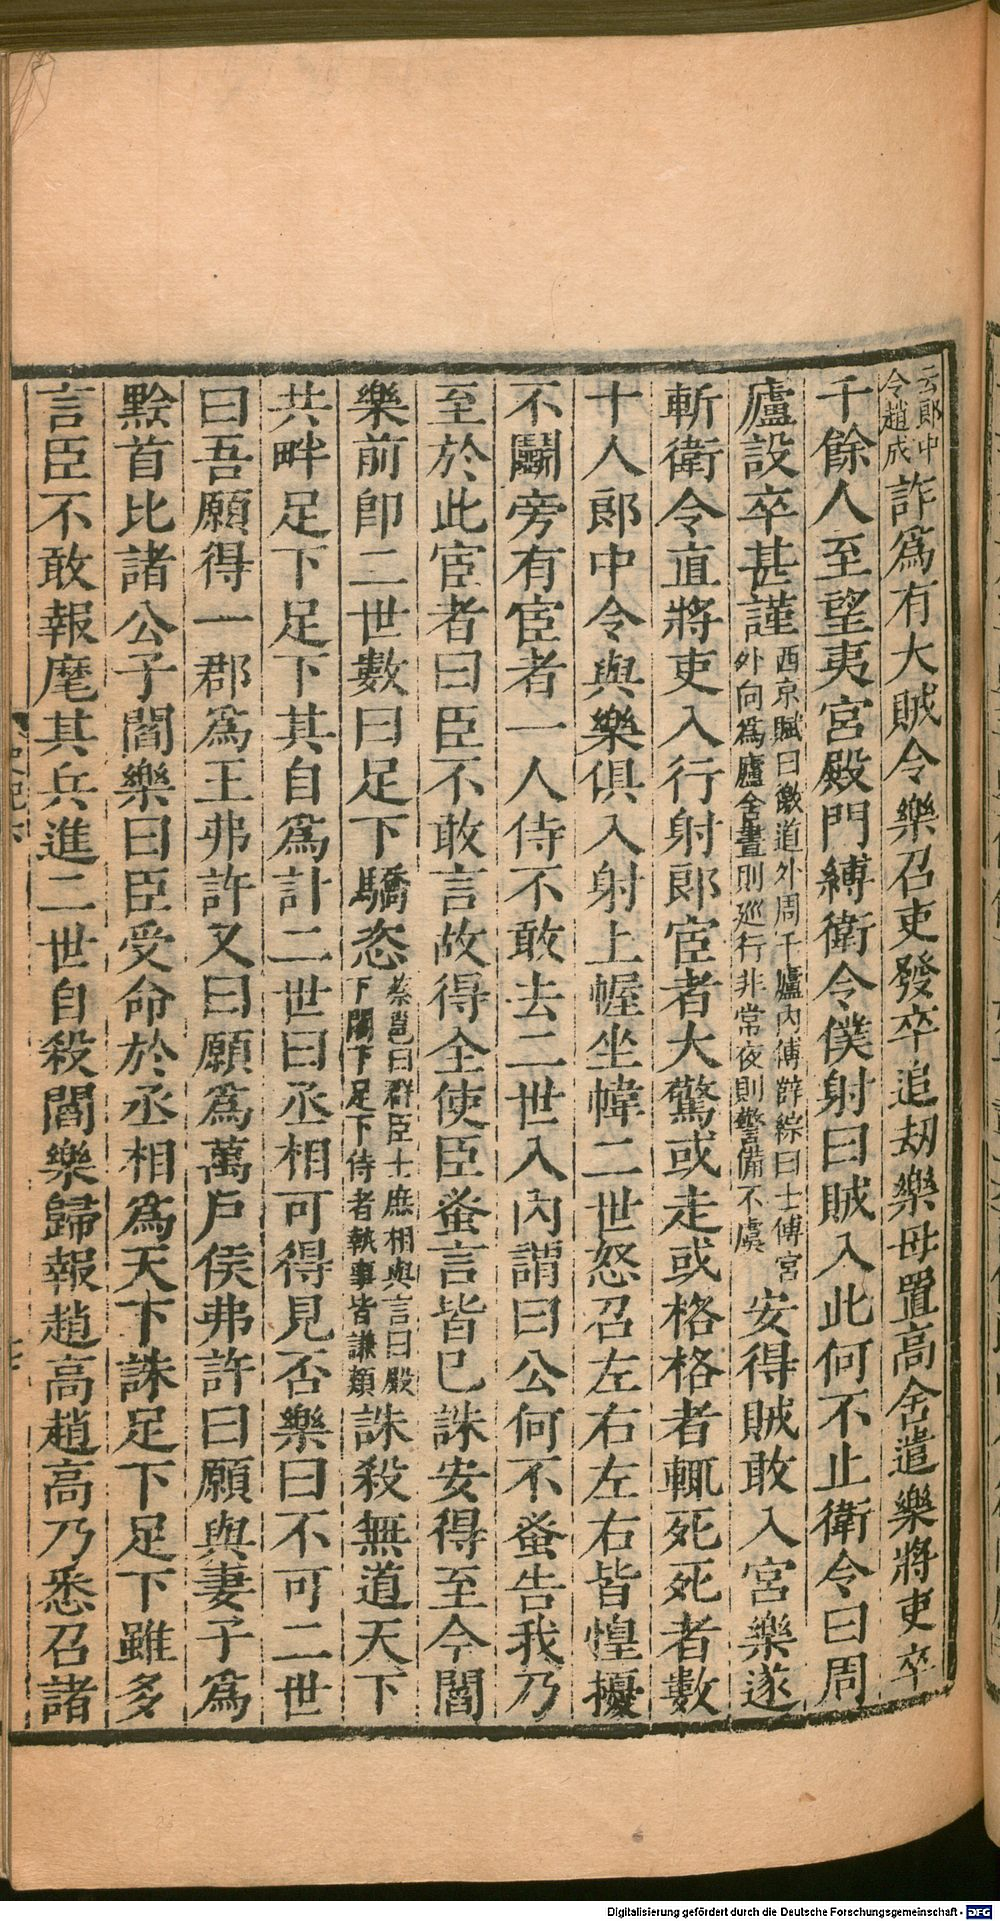 云郎中令趙成詐爲有大賊令樂召吏發卒追刼樂母置高舍遣樂將吏卒
千餘人至望夷宮殿門縛衛令僕射曰賊入此何不止衛令曰周
廬設卒甚謹西京賦曰徼道外周千廬內傅薛綜曰士傅宮外向爲廬舍晝則巡行非常夜則警備不虞安得賊敢入宮樂遂
斬衛令直將吏入行射郎宦者大驚或走或格格者輒死死者數
十人郎中令與樂俱入射上幄坐幃二世怒召左右左右皆惶擾
不鬭旁有宦者一人侍不敢去二世入內謂曰公何不蚤告我乃
至於此宦者曰臣不敢言故得全使臣蚤言皆已誅安得至今閻
樂前卽二世數曰足下驕恣蔡邕曰群臣士庶相與言曰殿下閣下足下侍者執事皆謙類誅殺無道天下
共畔足下足下其自爲計二世曰丞相可得見否樂曰不可二世
曰吾願得一郡爲王弗許又曰願爲萬戶侯弗許曰願與妻子爲
黔首比諸公子閻樂曰臣受命於丞相爲天下誅足下足下雖多
言臣不敢報麾其兵進二世自殺閻樂歸報趙高趙高乃悉召諸
史記六
Digitalisierung gefördert durch die Deutsche Forschungsgemeinschaft - DFG